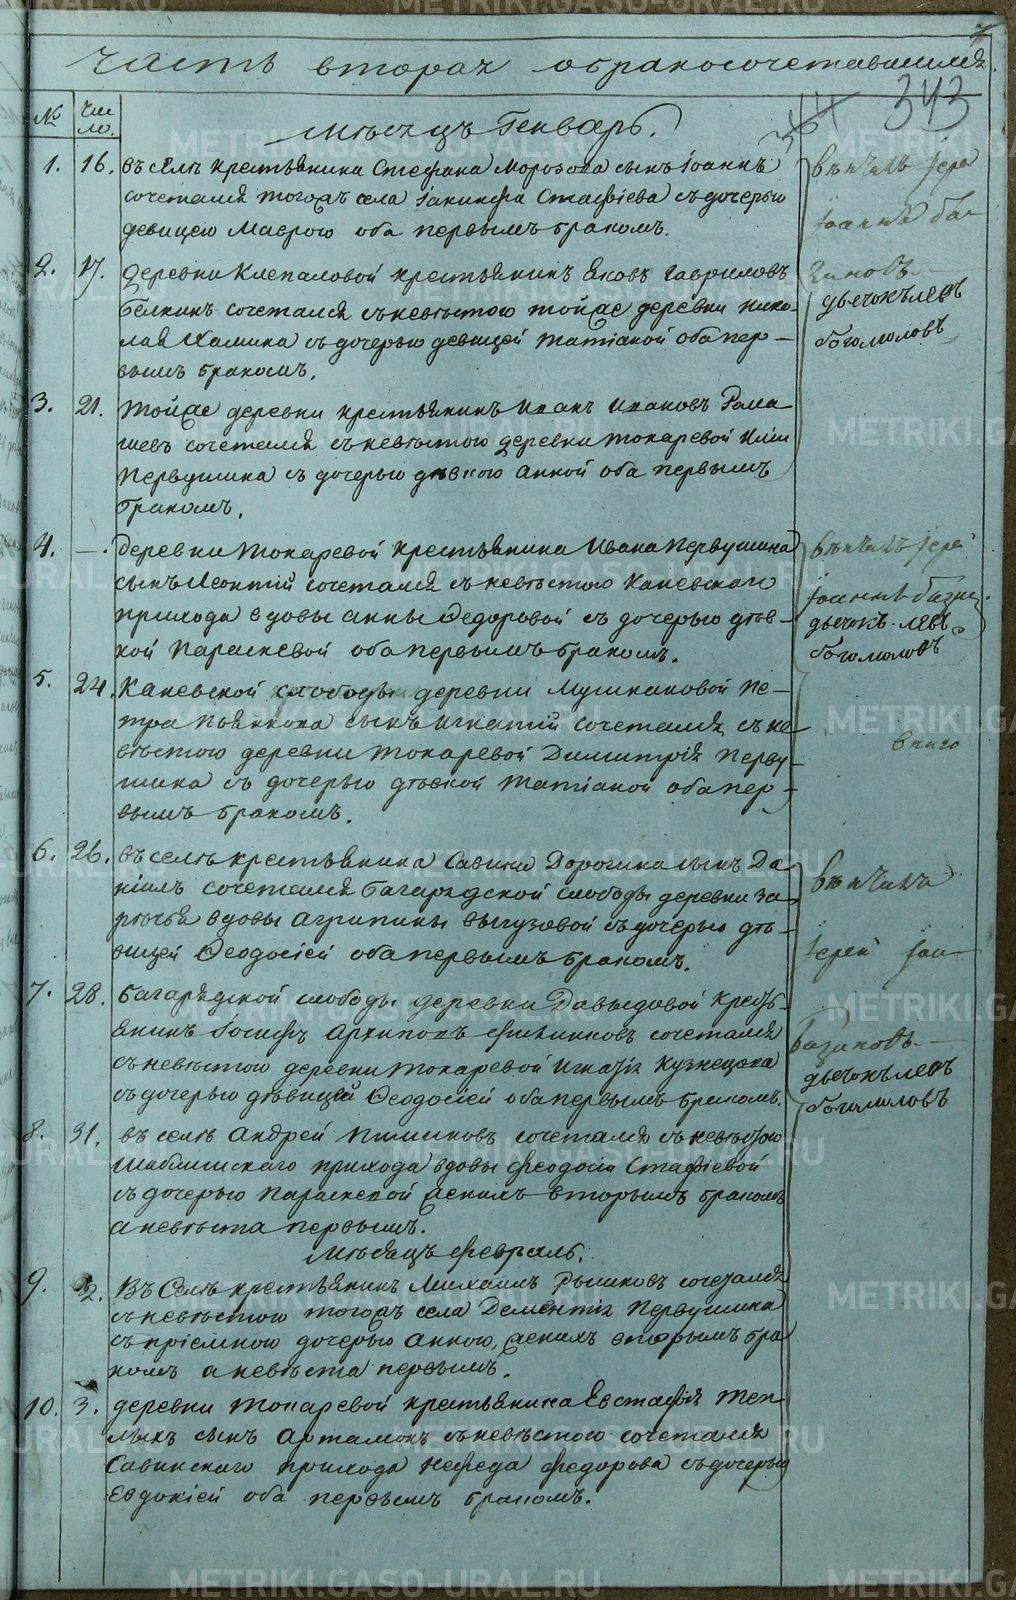 Часть вторая о бракосочетавшихся.
343
№ Число.
Мѣсяцъ Генварь.
1. 16. въ селѣ крестьянина Стефана Морозова сынъ Іоаннъ
сочетался тогожъ села Іакинфа Стафіева съ дочерью
девицею Маврою оба первымъ бракомъ.
2. 17. деревни Клепаловой крестьянинъ Яковъ Гавриловъ
Белкинъ сочетался съ невѣстою тойже деревни Нико-
лая Халина съ дочерью девицей Татіаной оба пер-
вымъ бракомъ.
3. 21. тойже деревни крестьянинъ Иванъ Ивановъ Рома-
шевъ сочетался съ невѣстою деревни Токаревой Иліи
Первушина съ дочерью дѣвкою Анной оба первымъ
бракомъ.
4. —. деревни Токаревой крестьянина Ивана Первушина
сынъ Леонтій сочетался съ невѣстою Каневскаго
прихода вдовы Анны Ѳедоровой съ дочерью дѣв-
кой Параскевой оба первымъ бракомъ.
5. 24. Каневской слободы деревни Мушкановой Пе-
тра Пьянкова сынъ Игнатій сочетался съ не-
вѣстою деревни Токаревой Димитрія Перву-
шина съ дочерью дѣвкой Татіаной оба пер-
вымъ бракомъ.
6. 26. въ селѣ крестьянина Савина Дорогина сынъ Да-
ніилъ сочетался Багарядской слободы деревни За-
рѣчья вдовы Агрипины Выгузовой съ дочерью дѣ-
вицей Ѳеодосіей оба первымъ бракомъ.
7. 28. Багарядской слободы деревни Давыдовой кресть-
янинъ Іосифъ Архиповъ сочетался
съ невѣстою деревни Токаревой Игнатія Кузнецова
съ дочерью дѣвицей Ѳеодосіей оба первымъ бракомъ.
8. 31. въ селѣ Андрей Пшшковъ сочетался съ невѣстою
Шаблишскаго прихода вдовы Феодосіи Стафіевой
съ дочерью Параскевой женихъ вторымъ бракомъ
а невѣста первымъ.
Мѣсяцъ Февраль.
9. 2. Въ Селѣ крестьянинъ Михаилъ Рышковъ сочетался
съ невѣстою тогожъ села Дементія Первушина
съ пріемною дочерью Анною, женихъ вторымъ бра
комъ а невѣста первымъ.
10. 3. деревни Токаревой крестьянина Евстафія Теп-
лыхъ сынъ Артамонъ съ невѣстою сочетался
Савинскаго прихода Нефеда Федорова съ дочерью
Евдокіей оба первымъ бракомъ.
вѣнчалъ Іерей
Іоаннъ Ба-
зиновъ
дьячокъ Левъ
боголюбовъ
вѣнчалъ Іерей
Іоаннъ
дьячокъ Левъ
боголюбовъ
вѣнчалъ
Іерей Іоа-
Базиновъ
дьячокъ Левъ
боголюбовъ
METRIKI.GASO-URAL.RU